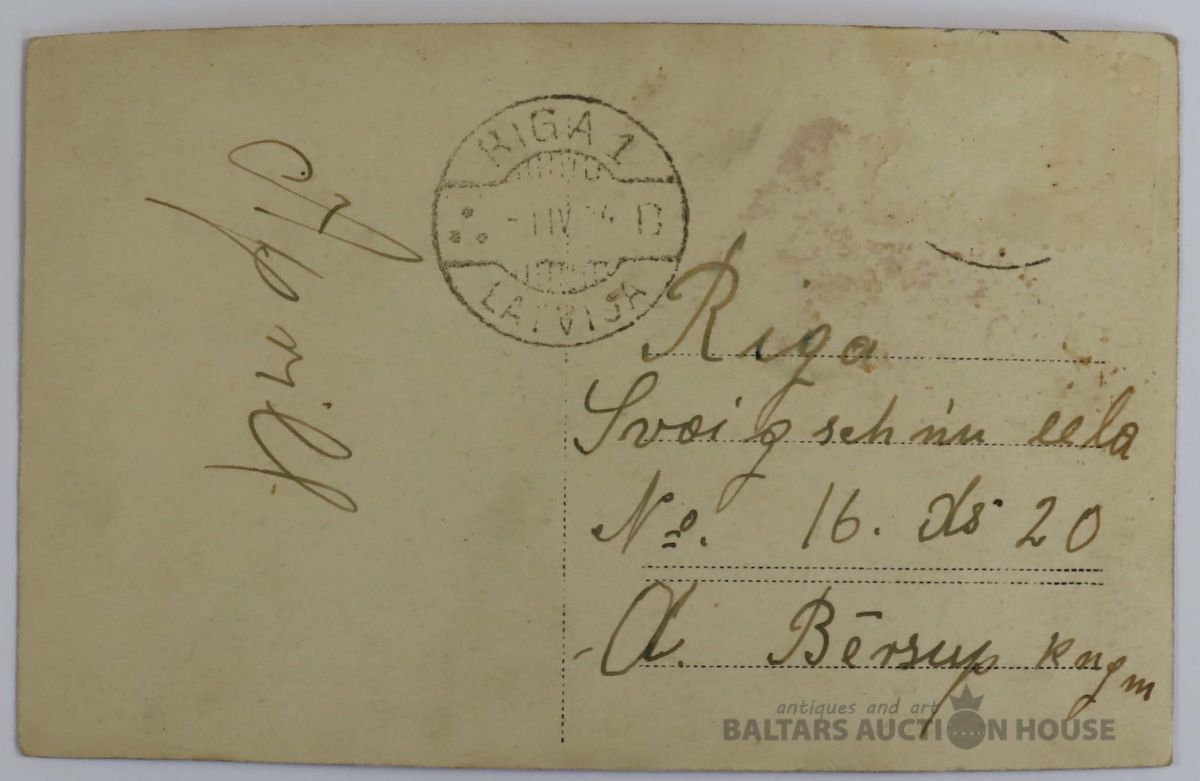 RIGA 1
-1 IV 24 D
LATVIJA
Riga
Svaigschņu eela
No. 16. ds 20
A. Bērsup kngm
antiques and art
BALTARS AUCTION HOUSE